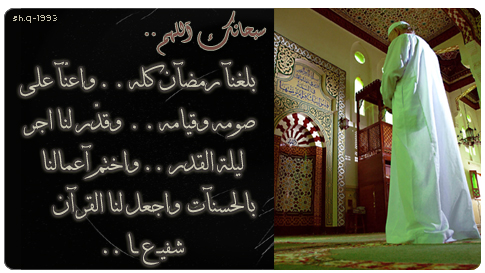 sh.q-1993
سبحانك اللهم ..
بلغنآ رمضآن كله . . واعنّآ على
صومه وقيامه . . وقدْر لنا اجر
ليلة القدر . . واختم آعمالنا
بالحسنآت واجعل لنا القرآن
شفيعـا ..